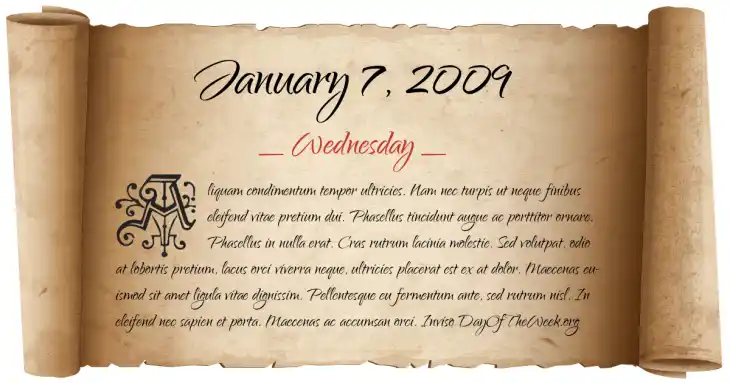 January 7, 2009
Wednesday
Aliquam condimentum tempor ultricies. Nam nec turpis ut neque finibus
eleifend vitae pretium dui. Phasellus tincidunt augue ac porttitor ornare.
Phasellus in nulla erat. Cras rutrum lacinia molestie. Sed volutpat, odio
at lobortis pretium, lacus orci viverra neque, ultricies placerat est ex at dolor. Maecenas eu-
ismod sit amet ligula vitae dignissim. Pellentesque eu fermentum ante, sed rutrum nisl. In
eleifend nec sapien et porta. Maecenas ac accumsan orci. Inviso DayOfTheWeek.org